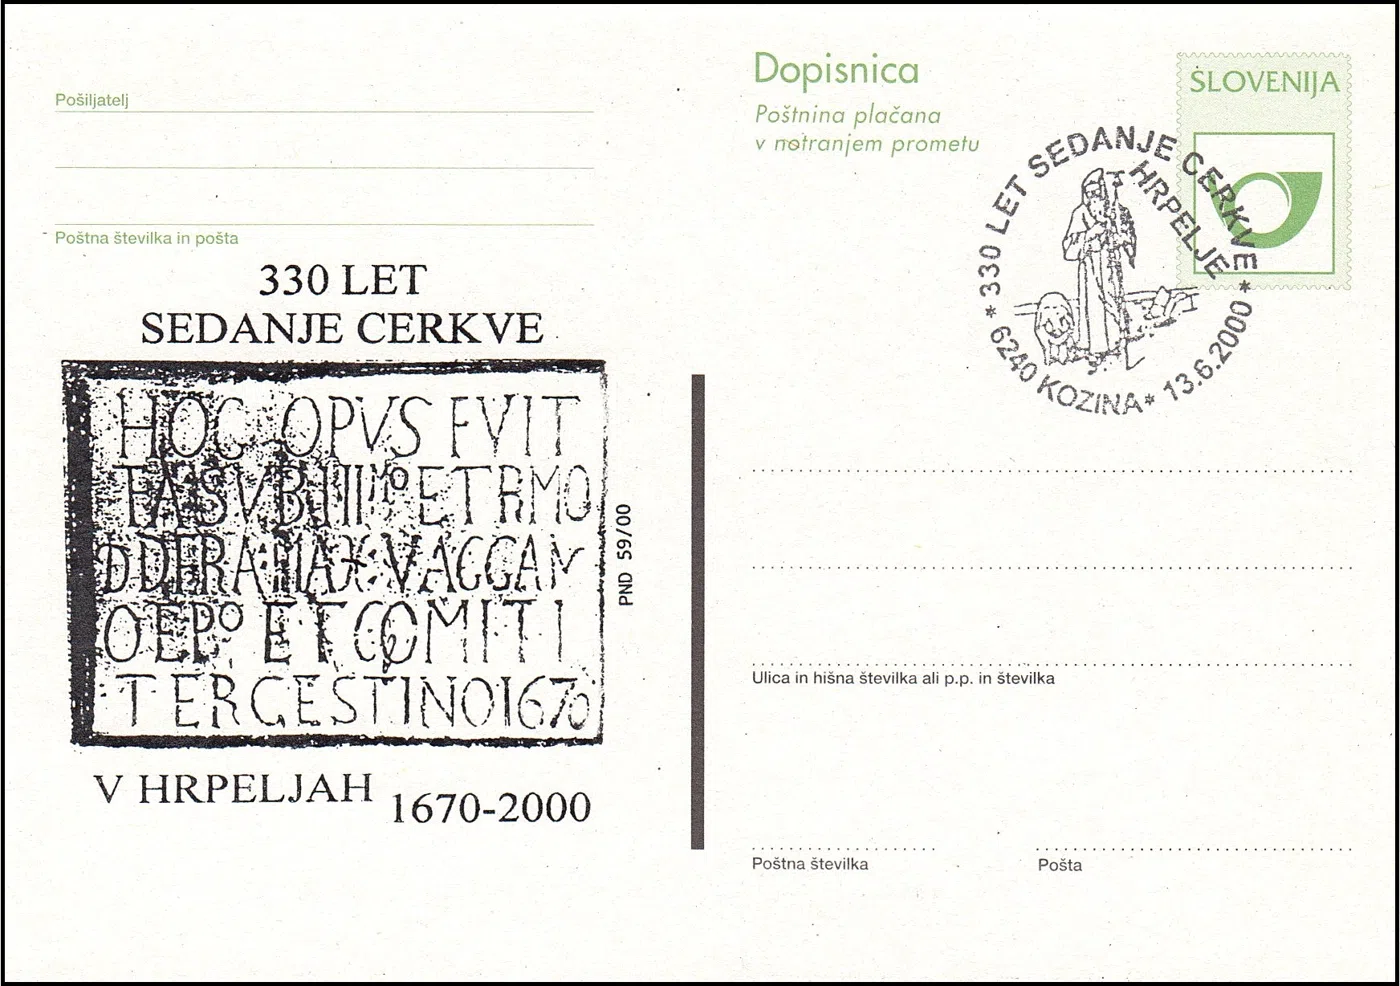 Pošiljatelj
Poštna številka in pošta
330 LET
SEDANJE CERKVE
HOC OPVS FVIT
ET RMO
VACCAN
OEPO ET COMITI
TERGESTINO 1670
PND 59/00
V HRPELJAH
1670-2000
Dopisnica
Poštnina plačana
v notranjem prometu
SLOVENIJA
* 330 LET SEDANJE CERKVE *
HRPELJE
6240 KOZINA * 13.6.2000
Ulica in hišna številka ali p.p. in številka
Poštna številka
Pošta